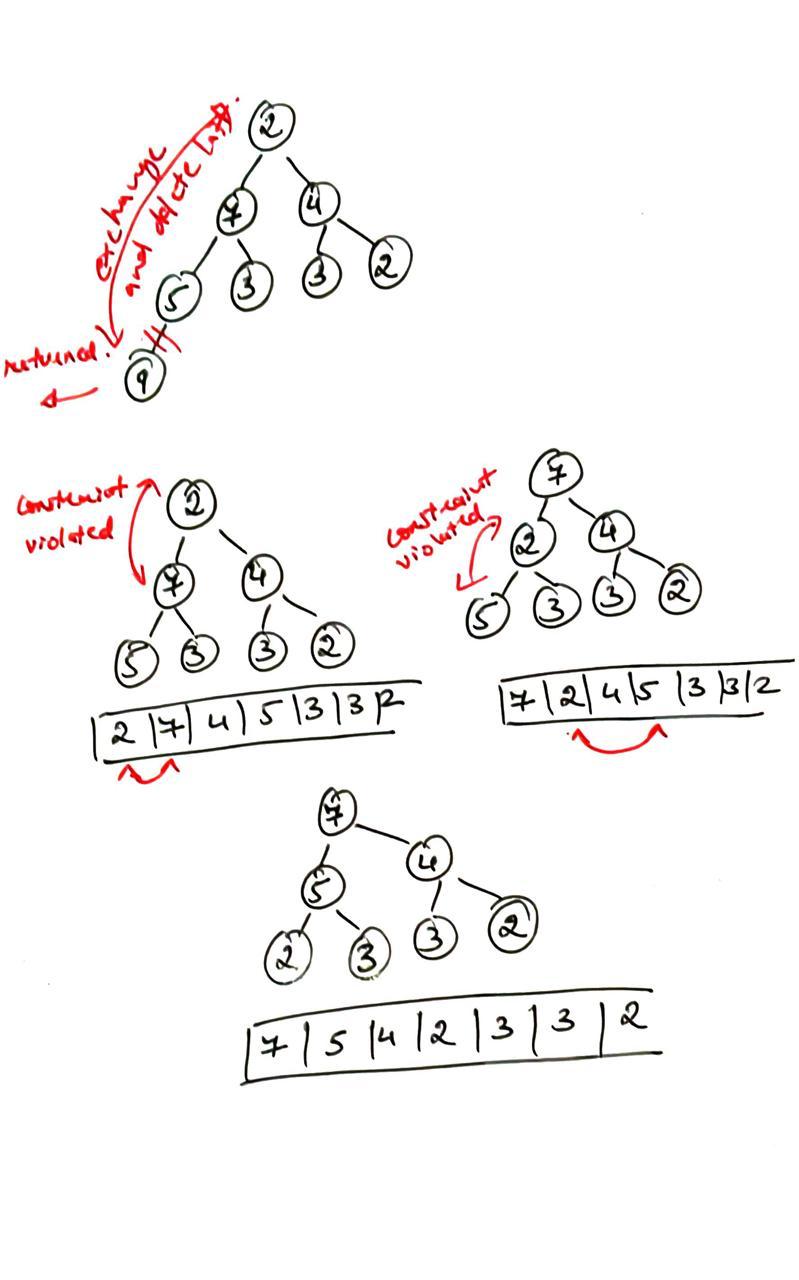 exchange
and delete last
2
7 4
5 3 3 2
returned.
9
constraint
violated
2
7 4
5 3 3 2
2 | 7 | 4 | 5 | 3 | 3 | 2
constraint
violated
7
2 4
5 3 3 2
7 | 2 | 4 | 5 | 3 | 3 | 2
7
5 4
2 3 3 2
7 | 5 | 4 | 2 | 3 | 3 | 2